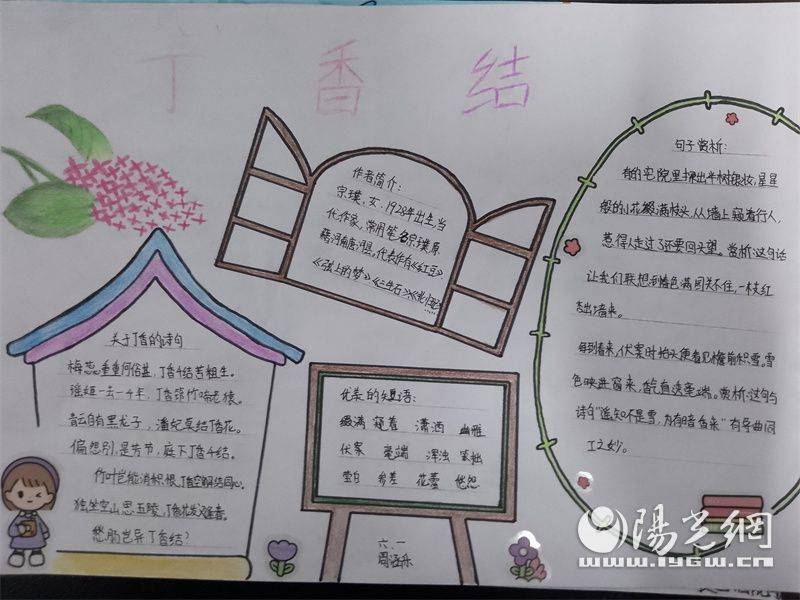 丁香结
关于丁香的诗句
梅蕊重重何俗甚,丁香千结苦粗生。
瑶姬一去一千年,丁香筇竹啼老猿。
青云自有黑龙子,潘妃莫结丁香花。
偏想别,是芳节,庭下丁香千结。
竹叶岂能消积恨,丁香空解结同心。
独坐空山思五陵,丁香花发
愁肠岂异丁香结?
作者简介:
宗璞,女,1928年出生,当
代作家,常用笔名宗璞,原
籍河南唐河县。代表作有《红豆》
《弦上的梦》《三生石》
优美的短语:
缀满 窥着 潇洒 幽雅
伏案 毫端 浑浊 笨拙
莹白 参差 花蕾 恍然
六、一
句子赏析:
有的宅院里探出半树银妆,星星
般的小花缀满枝头,从墙上窥着行人,
惹得人走过了还要回头望。赏析:这句话
让我们联想到春色满园关不住,一枝红
杏出墙来。
每到春来,伏案时抬头便看见檐前积雪。雪
色映进窗来,香气直透毫端。赏析:这句与
诗句“遥知不是雪,为有暗香来”有异曲同
工之妙。
陽光網
www.iygw.cn